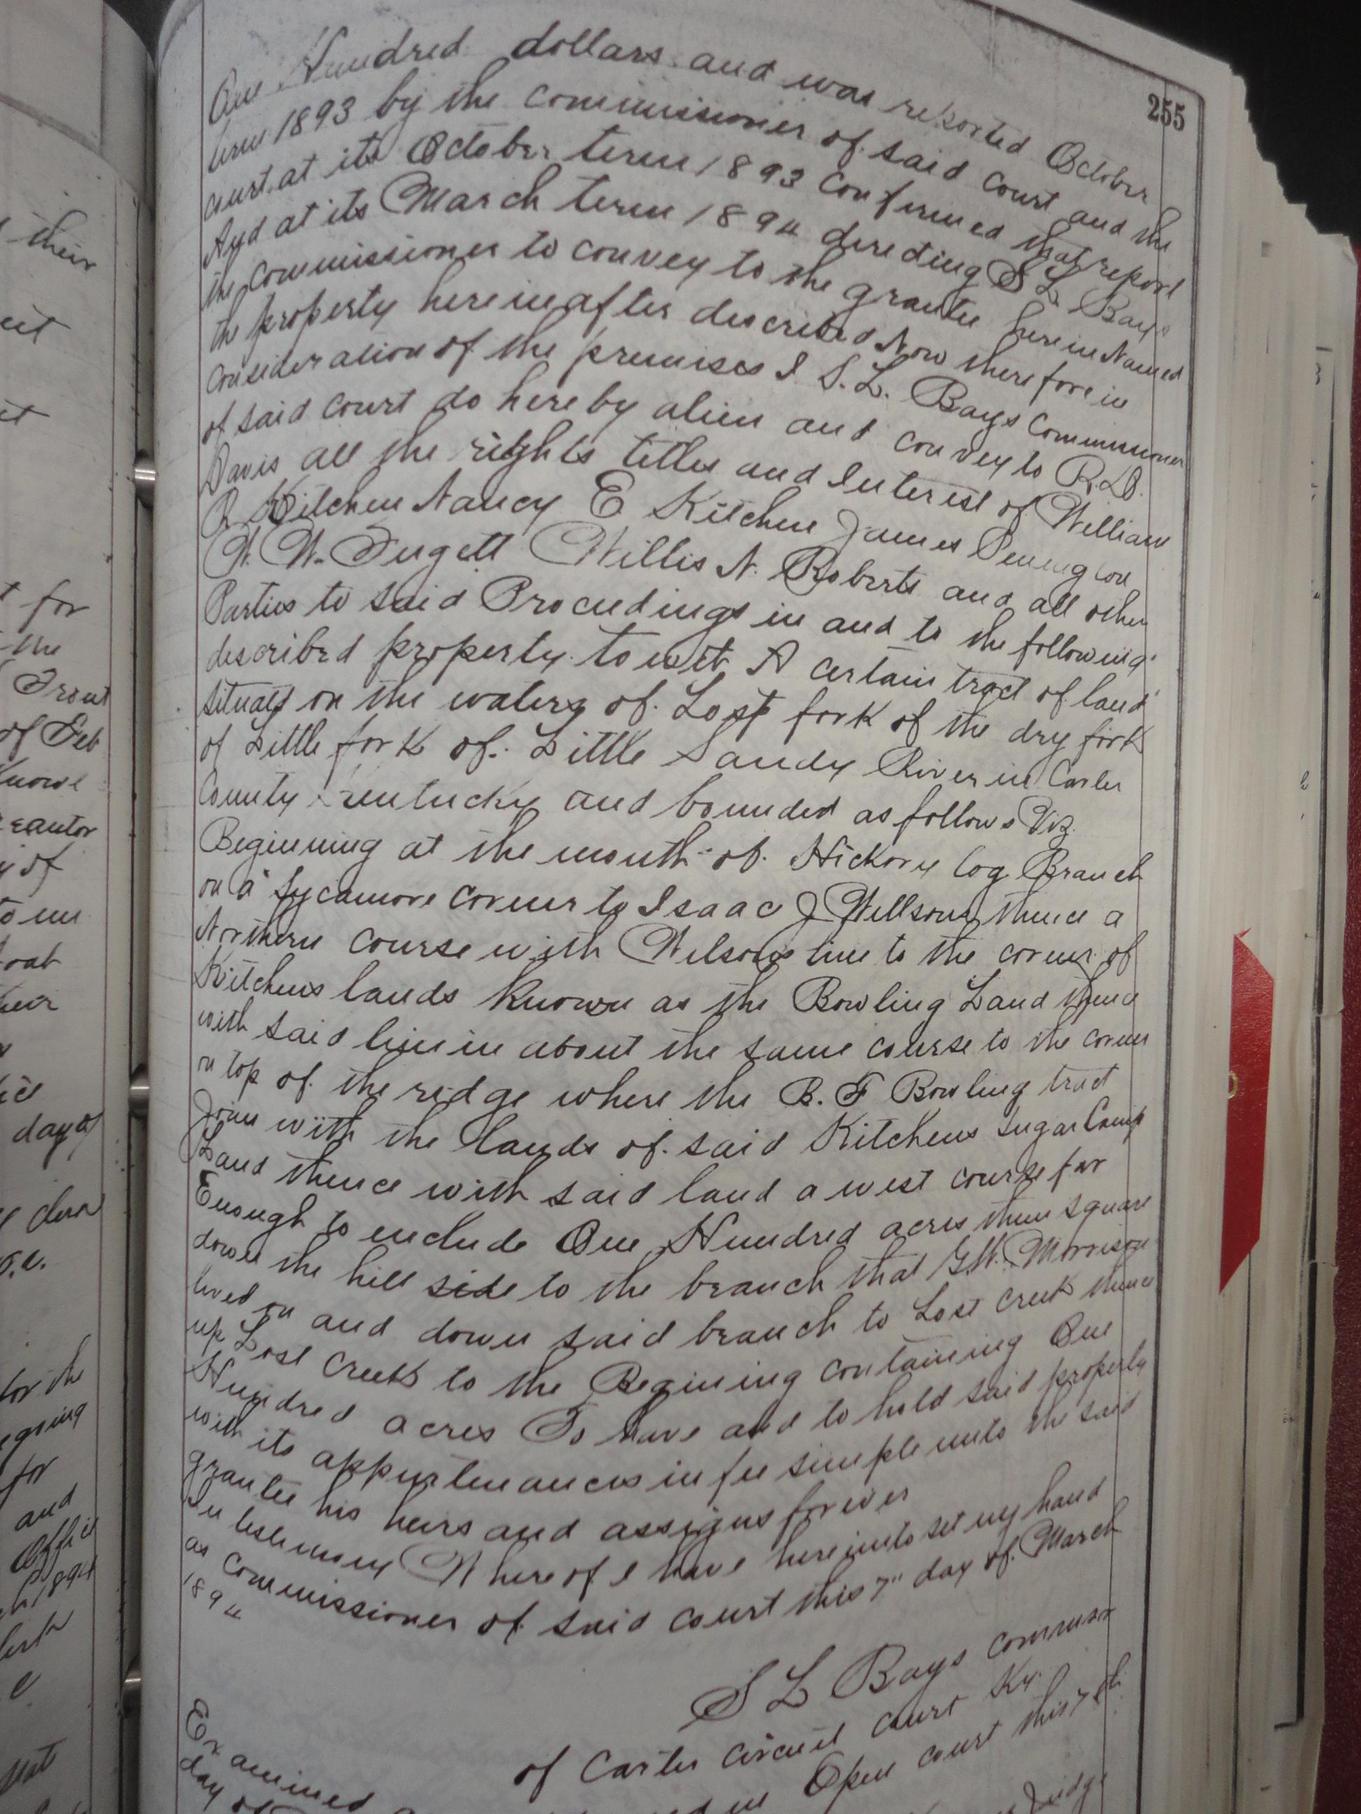 255
One Hundred dollars and was reported October
term 1893 by the commissioner of said court and the
court at its October term 1893 confirmed that report
And at its March term 1894 directing S L Bays
the commissioner to convey to the grantee herein Named
the property hereinafter described Now therefore in
consideration of the premises I S. L. Bays Commissioner
of said court do hereby alien and convey to R. D.
Davis all the rights titles and Interest of William
R Kitchen Nancy E Kitchen James Pennington
W. W. Fugett Willis N. Roberts and all other
Parties to said Proceedings in and to the following
described property to wit A certain tract of land
situate on the waters of Lost fork of the dry fork
of Little fork of Little Sandy River in Carter
County Kentucky and bounded as follows Viz
Beginning at the mouth of Hickory log Branch
on a Sycamore corner to Isaac J Willsons thence a
Northern course with Wilsons line to the corner of
Kitchens lands known as the Bowling Land thence
with said line in about the same course to the corner
on top of the ridge where the B. F Bowling tract
Join with the lands of said Kitchens Sugar Camp
Land thence with said land a west course far
Enough to enclude One Hundred acres then square
down the hill side to the branch that G.W. Morrison
lived on and down said branch to Lost Creek thence
up Lost Creek to the Begining containing One
Hundred acres To have and to hold said property
with its appurtenances in fee simple unto the said
grantee his heirs and assigns forever
In testimony Whereof I have hereunto set my hand
as commissioner of said court this 7" day of March
1894
S L Bays commisr
of Carter circuit court Ky.
Examined Open court this 7th
day of Judge
their
for
the
Front
of Feb
know
eantor
of
day of
for the
going
for
and
Office
1894